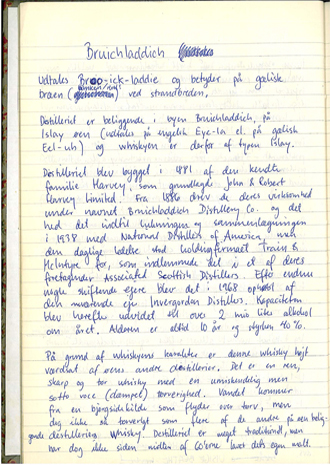 Bruichladdich
Udtales Broo-ick-laddie og betyder på gælisk
bræen ( ) ved strandbredden.
Distilleriet er beliggende i byen Bruichladdich, på
Islay øen (udtales på engelsk Eye-la el. på gælisk
Eel-uh) og whiskyen er derfor af typen Islay.
Destilleriet blev bygget i 1881 af den kendte
familie Harvey, som grundlagde John & Robert
Harvey Limited. Fra 1886 drev de deres virksomhed
under navnet Bruichladdich Distillery Co. og det
hed det indtil lukningen og sammenlægningen
i 1938 med National Distillers of America, men
den daglige ledelse stod holdingfirmaet Train &
McIntyre for, som indlemmede det i et af deres
foretagender Associated Scottish Distillers. Efter endnu
nogle skiftende ejere blev det i 1968 opkøbt af
den nuværende ejer Invergordon Distillers. Kapaciteten
blev herefter udvidet til over 2 mio liter alkohol
om året. Alderen er altid 10 år og styrken 40%.
På grund af whiskyens karakter er denne whisky højt
vurderet af øens andre destillerier. Det er en ren,
skarp og tør whisky med en umiskendelig men
sotto voce (dæmpet) tørverighed. Vandet kommer
fra en bjergsidekilde som flyder over tørv, men
dog ikke så tørverigt som flere af de andre på øen belig-
gende destillering whisky. Destilleriet er meget traditionelt, men
har dog ikke siden midten af 60'erne lavet dets egen malt.